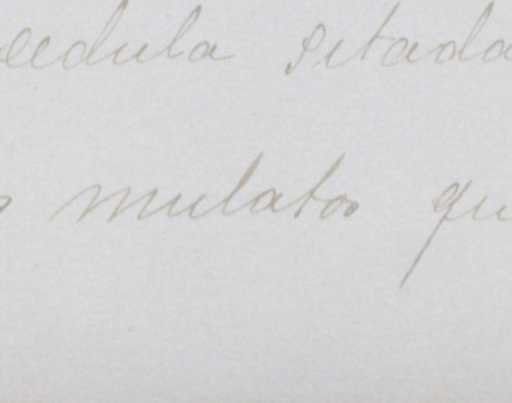 cedula sitada
mulatos qu